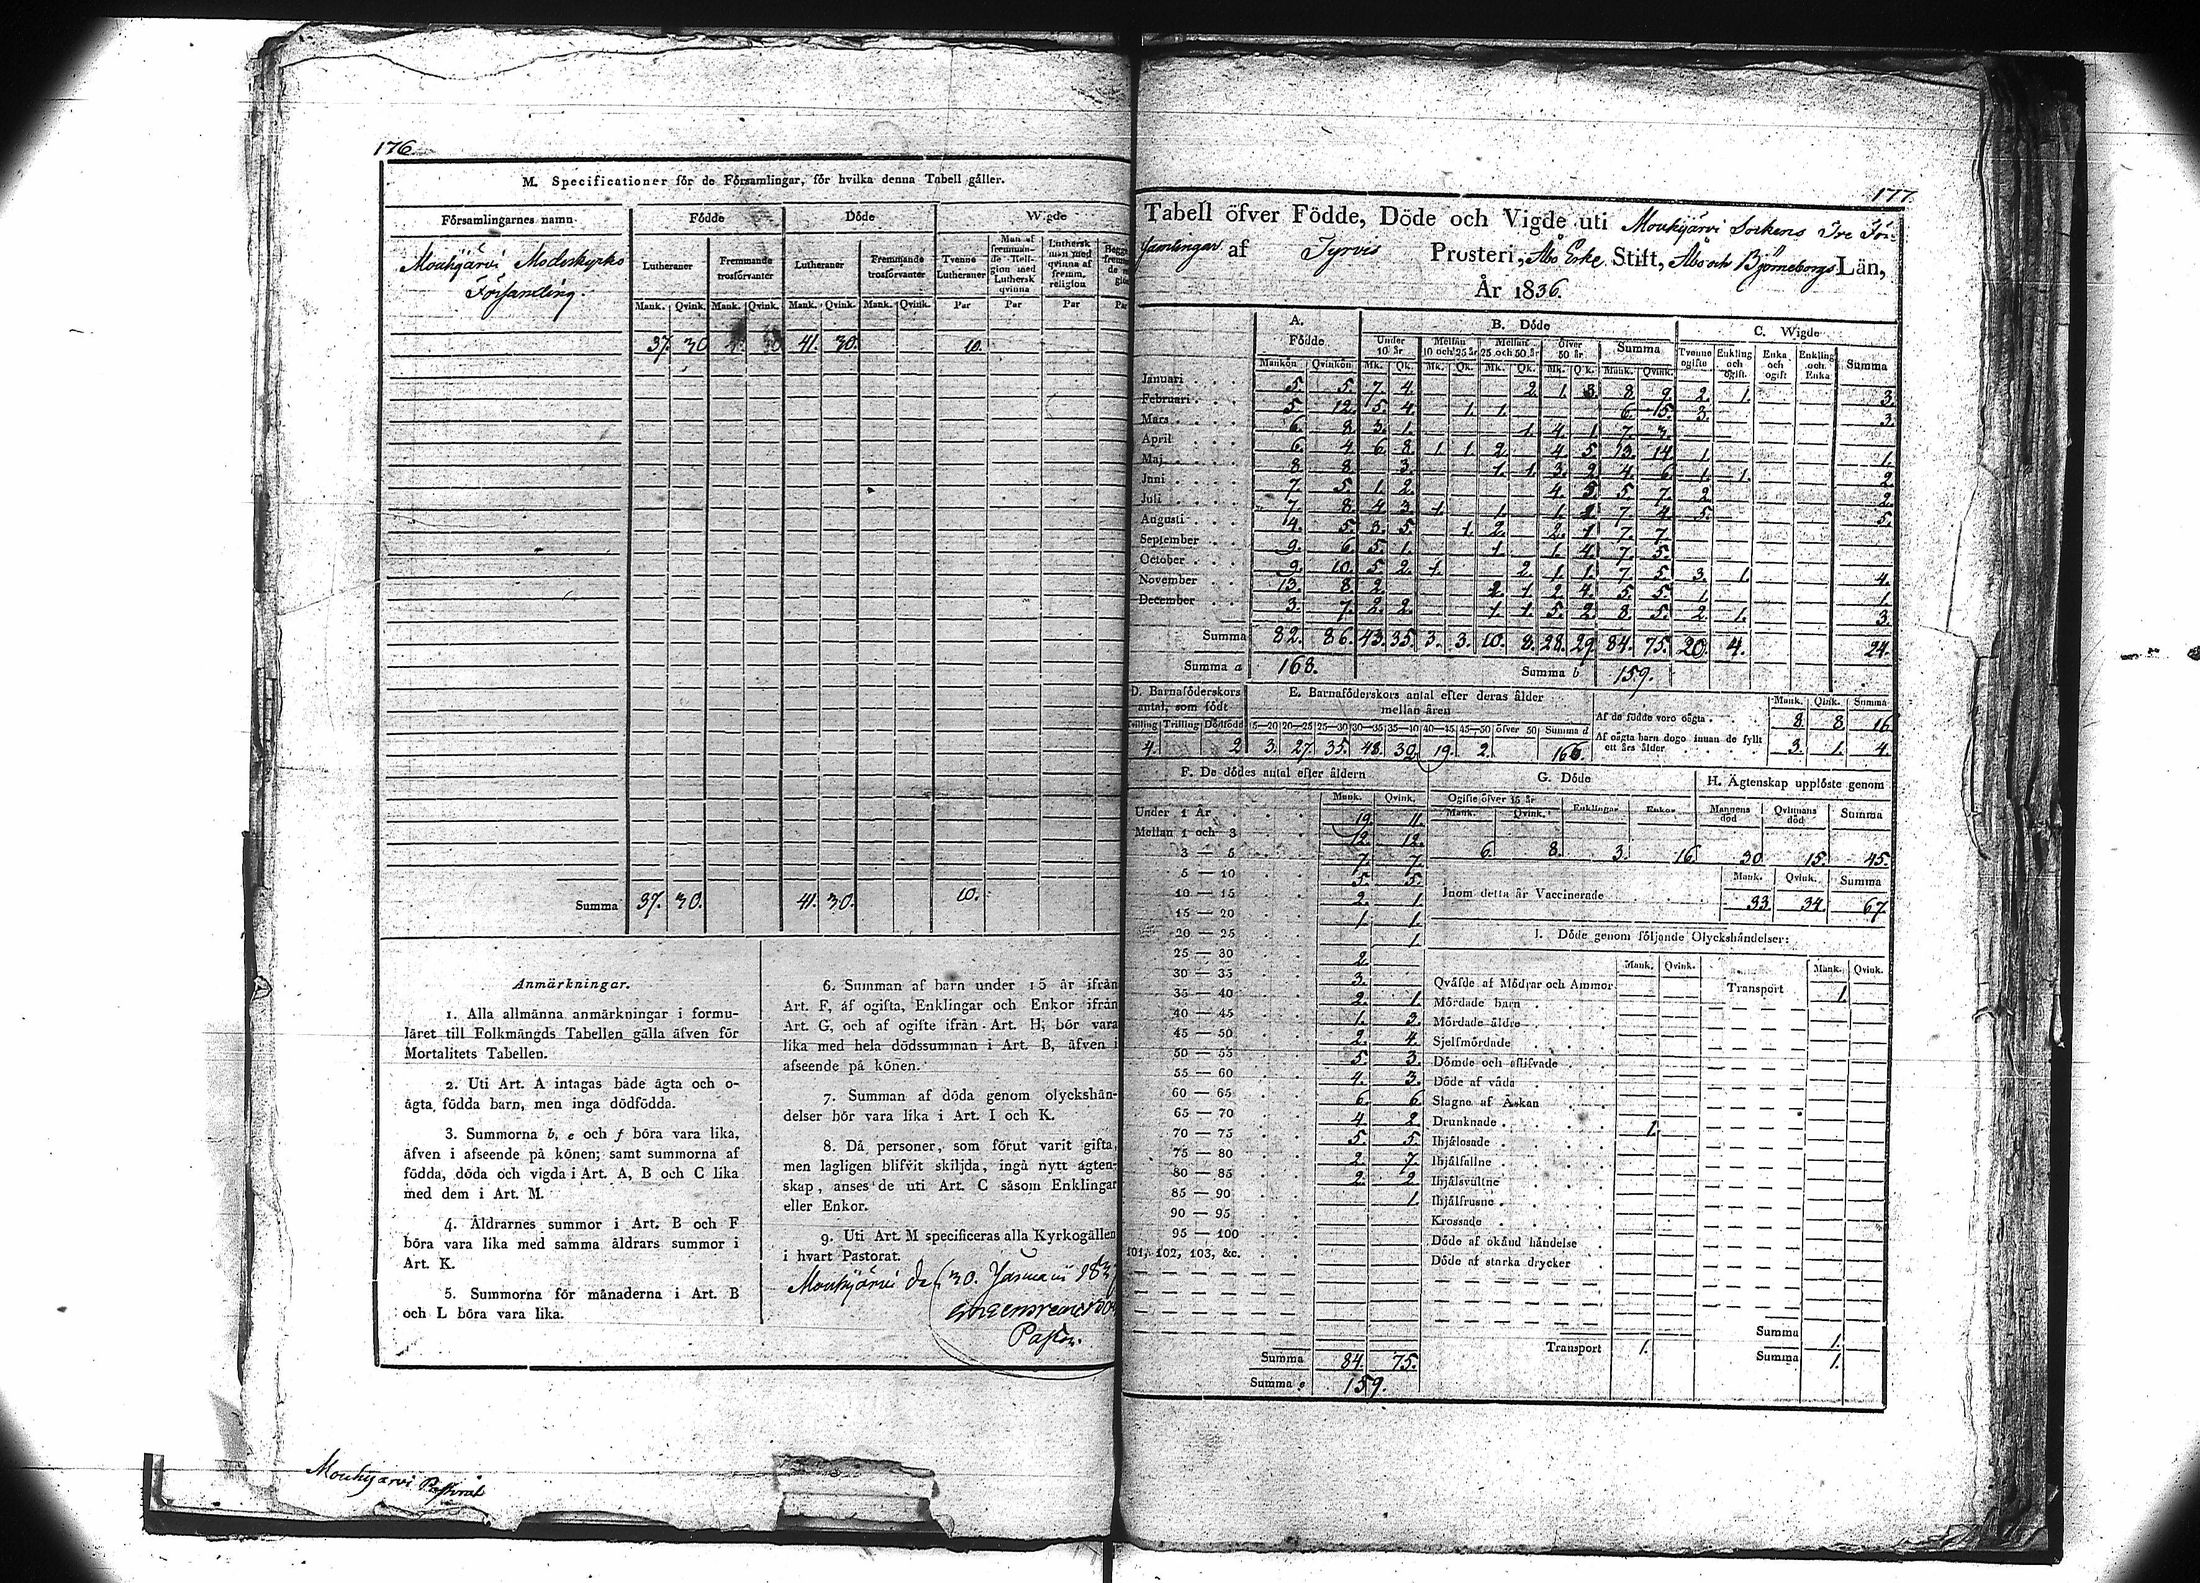 176
M. Specificationer för de Församlingar, för hvilka denna Tabell gäller.
Församlingarnes namn Födde Döde Wigde
Lutheraner Fremmande trosförvanter Lutheraner Fremmande trosförvanter Tvenne Lutheraner Man af fremmande Religion med Luthersk qvinna Luthersk man med qvinna af fremm. religion
Mank. Qvink. Mank. Qvink. Mank. Qvink. Mank. Qvink. Par Par Par Par
Mouhijärvi Moderkyrko
Församling.
37. 30 41. 30. 10.
Summa 37. 30. 41. 30. 10.
Anmärkningar.
1. Alla allmänna anmärkningar i formu-
läret till Folkmängds Tabellen gälla äfven för
Mortalitets Tabellen.
2. Uti Art. A intagas både ägta och o-
ägta födda barn, men inga dödfödda.
3. Summorna b, e och f böra vara lika,
äfven i afseende på könen; samt summorna af
födda, döda och vigda i Art. A, B och C lika
med dem i Art. M.
4. Åldrarnes summor i Art. B och F
böra vara lika med samma åldrars summor i
Art. K.
5. Summorna för månaderna i Art. B
och L böra vara lika.
6. Summan af barn under 15 år ifrån
Art. F, af ogifta, Enklingar och Enkor ifrån
Art. G, och af ogifte ifrån Art. H, bör vara
lika med hela dödssumman i Art. B, äfven i
afseende på könen.
7. Summan af döda genom olyckshän-
delser bör vara lika i Art. I och K.
8. Då personer, som förut varit gifta,
men lagligen blifvit skiljda, ingå nytt ägten-
skap, anses de uti Art. C såsom Enklingar
eller Enkor.
9. Uti Art. M specificeras alla Kyrkogällen
i hvart Pastorat.
Mouhijärvi den 30. Januarii 183
Pastor.
Mouhijärvi Pastorat
177.
Tabell öfver Födde, Döde och Vigde uti Mouhijärvi Sockens Tre För-
samlingar af Tyrvis Prosteri, Åbo Erke Stift, Åbo och Björneborgs Län,
År 1836.
A. Födde B. Döde C. Wigde
Under 10 år Mellan 10 och 25 år Mellan 25 och 50 år öfver 50 år Summa Tvenne ogifte Enkling och ogift Enka och ogift Enkling och Enka Summa
Mankön Qvinkön Mk. Qk. Mk. Qk. Mk. Qk. Mk. Qk. Mank. Qvink.
Januari 5. 5. 7. 4. 2. 1. 3. 8. 9. 2. 1. 3.
Februari 5 12. 5. 4. 1. 1. 6. 15. 3. 3.
Mars 6. 8. 3. 1. 1. 4. 1. 7. 3.
April 6. 4. 6 8 1. 1. 2 4 5 13. 14. 1. 1.
Maj 8 8. 3. 1. 1. 3. 2 4 6. 1. 1. 2.
Juni 7. 5. 1. 2. 4. 5. 5 7. 2. 2.
Juli 7. 8 4 3. 1. 1. 1. 7. 4. 5. 5.
Augusti 4. 5. 3. 5. 1. 2. 2. 1 7. 7.
September 9. 6. 5. 1. 1. 1. 4. 7. 5.
October 9. 10. 5. 2. 1. 2. 1. 1. 7. 5. 3. 1. 4.
November 13. 8. 2. 1. 2. 4. 5. 5. 1. 1.
December 3. 7. 2. 2. 1. 1. 5. 2. 8. 5. 2. 1. 3.
Summa 82. 86. 43. 35. 3. 3. 10. 8. 28. 29. 84. 75. 20. 4. 24.
Summa a 168. Summa b 159.
D. Barnaföderskors antal, som födt E. Barnaföderskors antal efter deras ålder mellan åren
Tvilling Trilling Dödfödde 15—20 20—25 25—30 30—35 35—40 40—45 45—50 öfver 50 Summa d
4. 2 3. 27. 35. 48. 30. 19. 2. 166.
Mank. Qvink. Summa
Af de födde voro oägta 8. 8 16
Af oägta barn dogo innan de fyllt ett års ålder 3. 1. 4.
F. De dödes antal efter åldern
Mank. Qvink.
Under 1 År 19 11.
Mellan 1 och 3 12. 12.
3 — 5 7. 7.
5 — 10 5. 5.
10 — 15 2. 1.
15 — 20 1. 1.
20 — 25 1.
25 — 30 2.
30 — 35 3.
35 — 40 2. 1.
40 — 45 1. 3.
45 — 50 2. 4.
50 — 55 5. 3.
55 — 60 4. 3.
60 — 65 6. 6
65 — 70 4 2.
70 — 75 5 5.
75 — 80 2. 7.
80 — 85 2. 2
85 — 90 1.
90 — 95
95 — 100
101, 102, 103, &c.
Summa 84. 75.
Summa e 159.
G. Döde
Ogifte öfver 15 år Enklingar Enkor
Mank. Qvink.
6. 8. 3. 16.
H. Ägtenskap upplöste genom
Mannens död Qvinnans död Summa
30. 15. 45.
Mank. Qvink. Summa
Inom detta år Vaccinerade 33. 34. 67.
I. Döde genom följande Olyckshändelser:
Mank. Qvink. Mank. Qvink.
Qväfde af Mödrar och Ammor Transport 1.
Mördade barn
Mördade äldre
Sjelfmördade
Dömde och aflifvade
Döde af våda
Slagne af Åskan
Drunknade 1.
Ihjälosade
Ihjälfallne
Ihjälsvultne
Ihjälfrusne
Krossade
Döde af okänd händelse
Döde af starka drycker
Summa 1.
Transport 1. Summa 1.